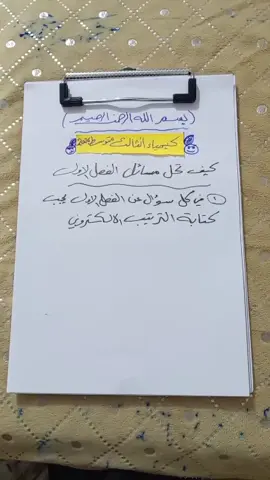 (بسم الله الرحمن الرحيم)
كيمياء الثالث متوسط
كيف نحل مسائل الفصل الاول
① في كل سؤال من الفصل الاول يجب
كتابة الترتيب الالكتروني